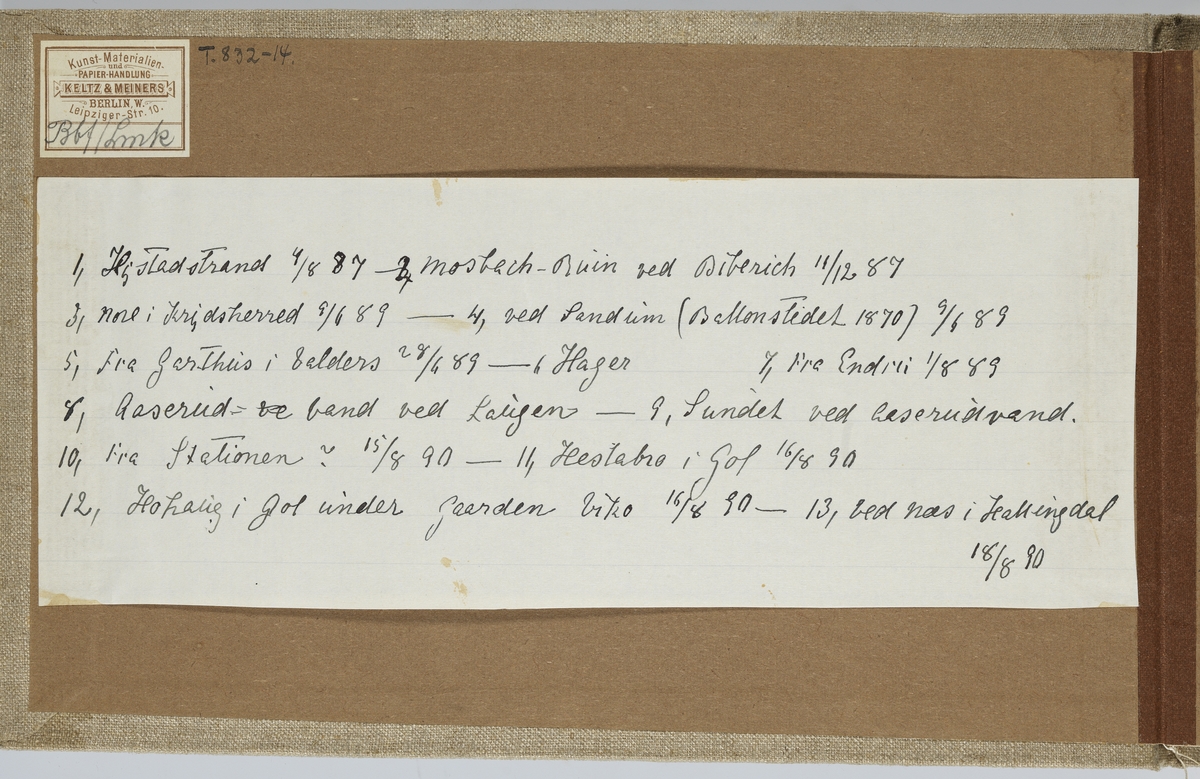 Kunst-Materialien-
und
PAPIER-HANDLUNG
KELTZ & MEINERS
BERLIN, W.
Leipziger-Str. 10.
T. 832-14.
1, stadstrand 4/8 87 — 2, Mosbach-Ruin ved Biberich 11/12 87
3, nore i Krydsherred 9/6 89 — 4, ved Sandum (Ballonstedet 1870) 9/6 89
5, Fra Garthus i Valders 28/6 89 — 6 Hager 7, Fra 1/8 89
8, Aaserud- vand ved Laugen — 9, Sundet ved Aaserudvand.
10, Fra Stationen ? 15/8 90 — 11, Hestabro i Gol 16/8 90
12, i Gol under Gaarden Viko 16/8 90 — 13, ved Næs i Hallingdal
18/8 90